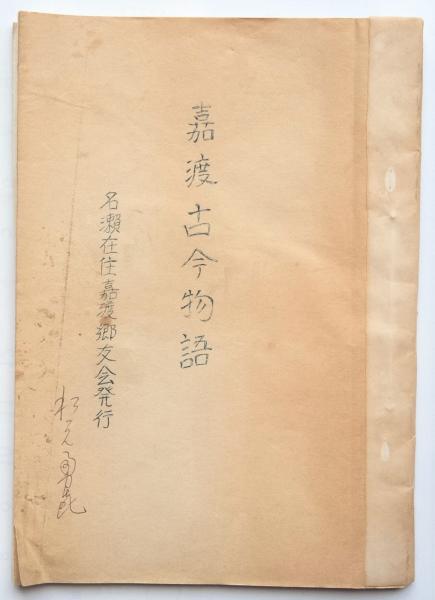 嘉渡古今物語
名瀬在住嘉渡郷友会発行